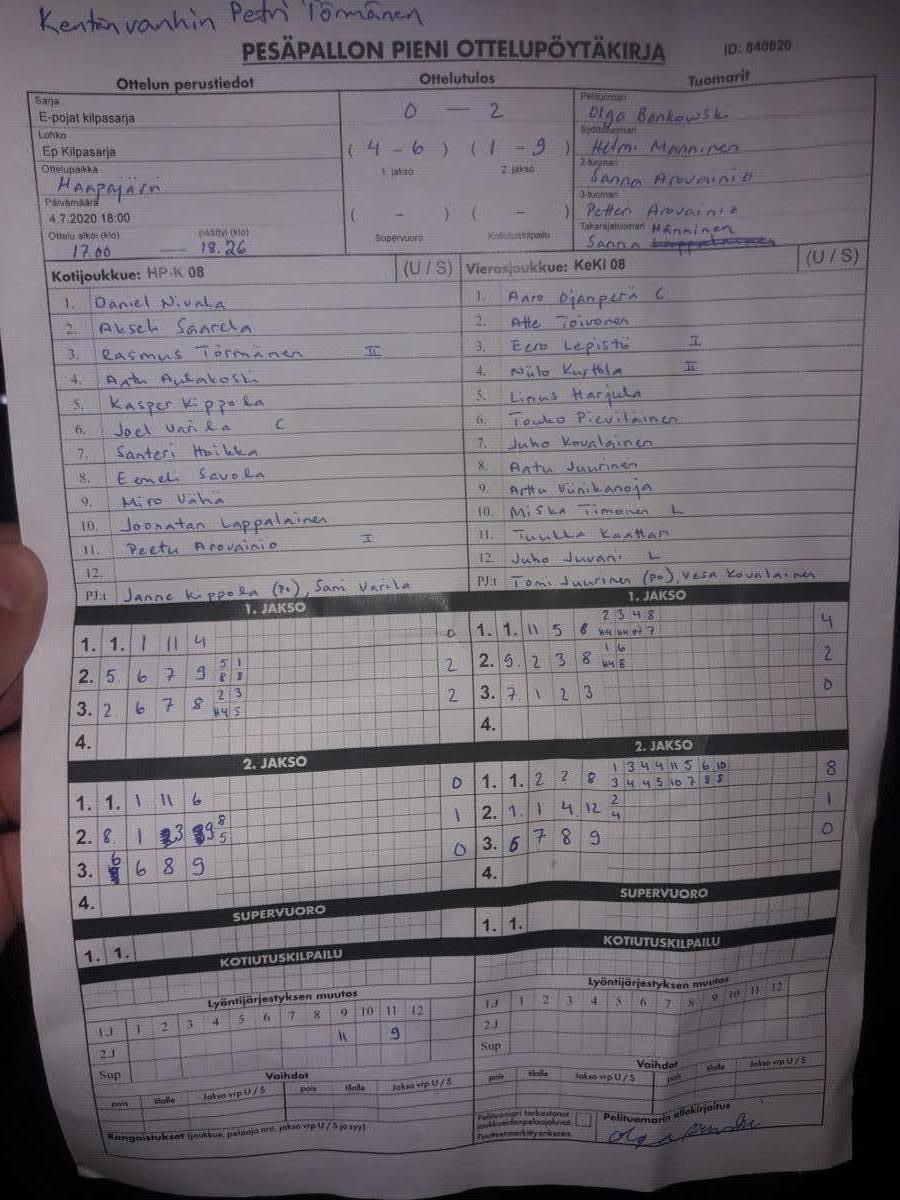 Kentänvanhin Petri Törmänen
PESÄPALLON PIENI OTTELUPÖYTÄKIRJA
ID: 840820
Ottelun perustiedot
Sarja
E-pojat kilpasarja
Lohko
Ep Kilpasarja
Ottelupaikka
Haapajärvi
Päivämäärä
4.7.2020 18:00
Ottelu alkoi (klo) päättyi (klo)
17.00 — 18.26
Ottelutulos
0 — 2
( 4 - 6 ) ( 1 - 9 )
1. jakso 2. jakso
( - ) ( - )
Supervuoro Kotiutuskilpailu
Tuomarit
Pelituomari
Olga Bankowski
Syöttötuomari
Helmi Manninen
2-tuomari
Sanna Arovainio
3-tuomari
Petteri Arovainio
Takarajatuomari Männinen
Sanna
Kotijoukkue: HP-K 08 (U / S)
1. Daniel Nivala
2. Akseli Saarela
3. Rasmus Törmänen II
4. Antu Aulakoski
5. Kasper Kippola
6. Joel Varila C
7. Santeri Hoikka
8. Eemeli Savola
9. Miro Vähä
10. Joonatan Lappalainen
11. Peetu Arovainio I
12.
PJ:t Janne Kippola (PJ), Sami Varila
Vierasjoukkue: KeKi 08 (U / S)
1. Aaro Ojanperä C
2. Atte Toivonen
3. Eero Lepistö I
4. Niilo Kurttila II
5. Linus Harjula
6. Touko Pieviläinen
7. Juho Kovalainen
8. Antu Juurinen
9. Arttu Viinikanoja
10. Miska Timonen L
11. Tuukka Kaattari
12. Juho Juvani L
PJ:t Tomi Juurinen (PJ), Vesa Kovalainen
1. JAKSO
1. 1. 1 11 4 0
2. 5 6 7 9 5 1 2
8 8
3. 2 6 7 8 2 3 2
H4 5
4.
2. JAKSO
1. 1. 1 11 6 0
2. 8 1 3 9 8 1
5
3. 6 6 8 9 0
4.
SUPERVUORO
1. 1.
KOTIUTUSKILPAILU
Lyöntijärjestyksen muutos
1J 1 2 3 4 5 6 7 8 9 10 11 12
2J 11 9
Sup
Vaihdot
pois tilalle Jakso vrp U / S pois tilalle Jakso vrp U / S
Rangaistukset (joukkue, pelaaja nro, jakso vrp U / S ja syy)
1. JAKSO
1. 1. 11 5 8 2 3 4 8 4
H4 H4 H7 7
2. 9 2 3 8 1 6 2
H4 8
3. 7 1 2 3 0
4.
2. JAKSO
1. 1. 2 7 8 1 3 4 4 11 5 6 10 8
3 4 4 5 10 7 8 8
2. 1 1 4 12 2 1
4
3. 6 7 8 9 0
4.
SUPERVUORO
1. 1.
KOTIUTUSKILPAILU
Lyöntijärjestyksen muutos
1J 1 2 3 4 5 6 7 8 9 10 11 12
2J
Sup
Vaihdot
pois tilalle Jakso vrp U / S pois tilalle Jakso vrp U / S
Pelituomari tarkastanut
joukkueiden pelaajaluvat.
Puutteet merkitty erikseen.
Pelituomarin allekirjoitus